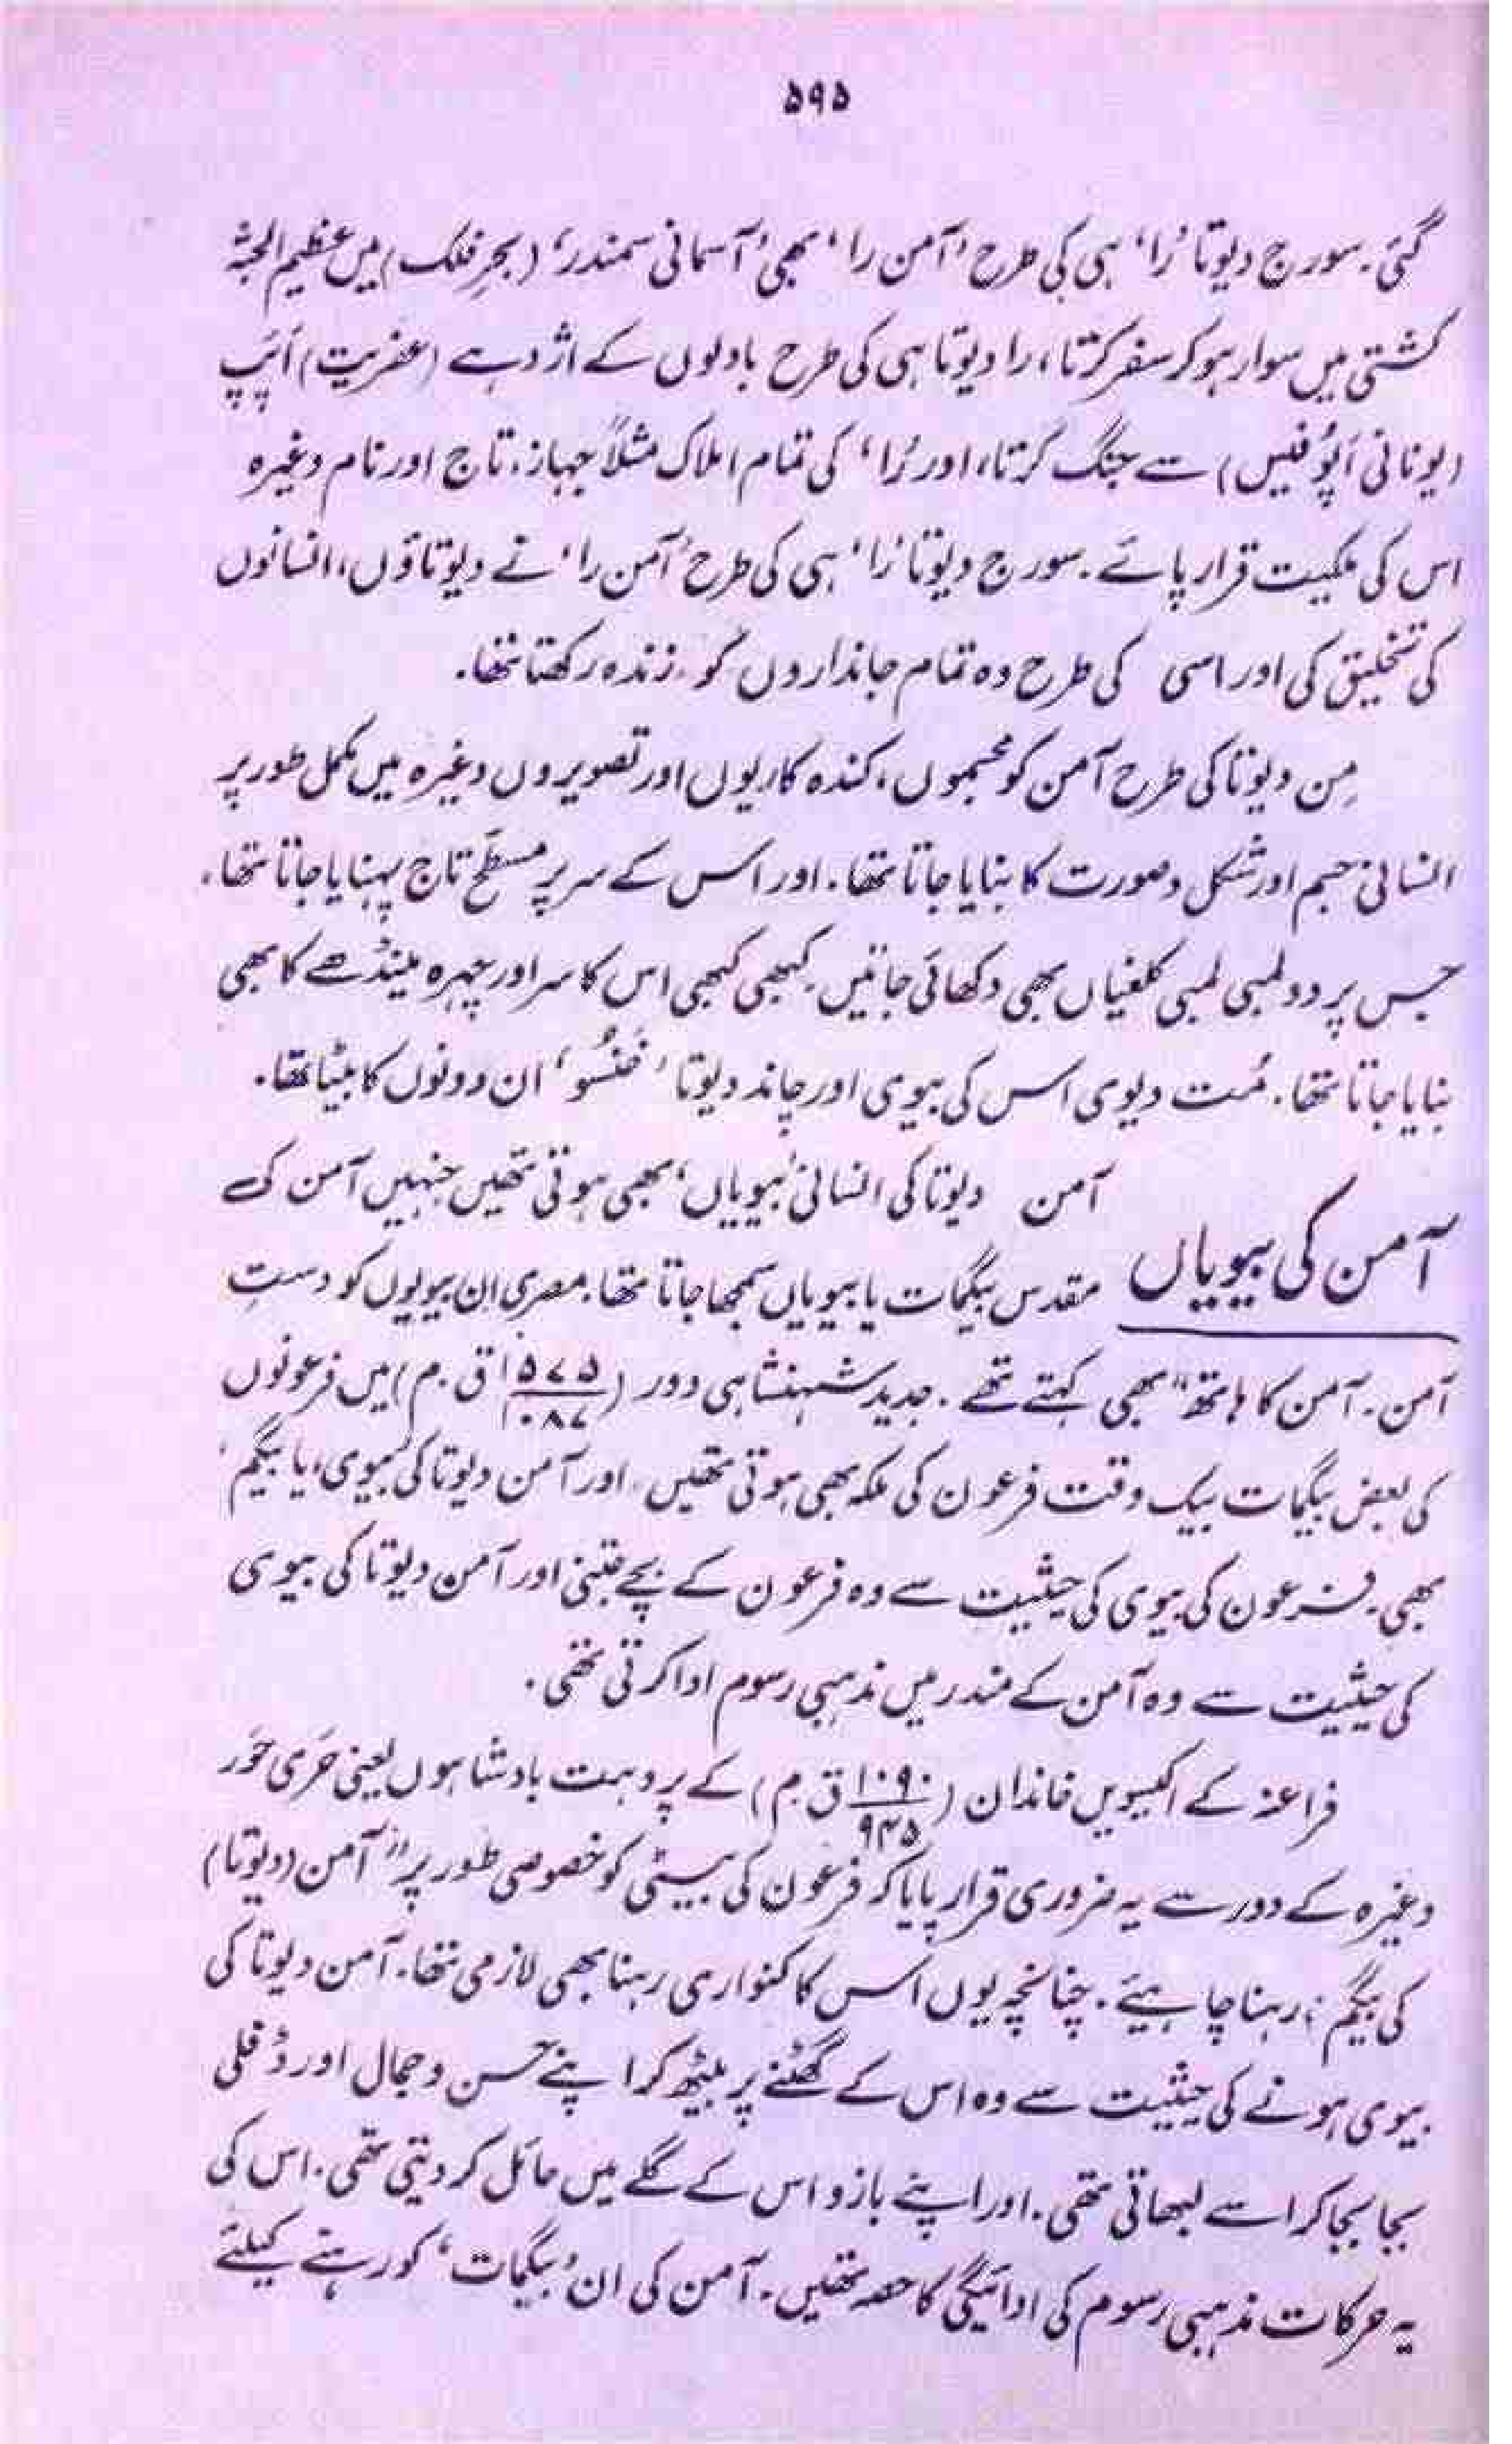 ۵۹۵
گئی۔ سورج دیوتا ’را‘ ہی کی طرح ’آمن را‘ بھی ’آسمانی سمندر‘ (بحرِ فلک) میں عظیم الجثہ
کشتی میں سوار ہو کر سفر کرتا، را دیوتا ہی کی طرح بادلوں کے اژدہے (عفریت) اَپَپ
(یونانی اَپُوفیس) سے جنگ کرتا، اور ’را‘ کی تمام املاک مثلاً جہاز، تاج اور نام وغیرہ
اس کی ملکیت قرار پائے۔ سورج دیوتا ’را‘ ہی کی طرح ’آمن را‘ نے دیوتاؤں، انسانوں
کی تخلیق کی اور اسی کی طرح وہ تمام جانداروں کو زندہ رکھتا تھا۔
مِن دیوتا کی طرح آمن کو مجسموں، کندہ کاریوں اور تصویروں وغیرہ میں مکمل طور پر
انسانی جسم اور شکل و صورت کا بنایا جاتا تھا۔ اور اس کے سر پر مسطّح تاج پہنایا جاتا تھا،
جس پر دو لمبی لمبی کلغیاں بھی دکھائی جاتیں۔ کبھی کبھی اس کا سر اور چہرہ مینڈھے کا بھی
بنایا جاتا تھا۔ مُت دیوی اس کی بیوی اور چاند دیوتا ’خنسُو‘ ان دونوں کا بیٹا تھا۔
آمن کی بیویاں
آمن دیوتا کی انسانی ’بیویاں‘ بھی ہوتی تھیں جنہیں آمن کی
مقدس بیگمات یا بیویاں سمجھا جاتا تھا۔ مصری ان بیویوں کو دستِ
آمن۔ آمن کا ہاتھ“ بھی کہتے تھے۔ جدید شہنشاہی دور (۱۵۷۵/۱۰۸۷ ق۔م) میں فرعونوں
کی بعض بیگمات بیک وقت فرعون کی ملکہ بھی ہوتی تھیں، اور آمن دیوتا کی ’بیوی، یا بیگم‘
بھی۔ فرعون کی بیوی کی حیثیت سے وہ فرعون کے بچے جنتی اور آمن دیوتا کی بیوی
کی حیثیت سے وہ آمن کے مندر میں مذہبی رسوم ادا کرتی تھی۔
فراعنہ کے اکیسویں خاندان (۱۰۹۰/۹۴۵ ق م) کے پروہت بادشاہوں یعنی حَری حَور
وغیرہ کے دور سے یہ ضروری قرار پایا کہ فرعون کی بیٹی کو خصوصی طور پر ”آمن (دیوتا)
کی بیگم“ رہنا چاہیئے۔ چنانچہ یوں اس کا کنواری رہنا بھی لازمی تھا۔ آمن دیوتا کی
بیوی ہونے کی حیثیت سے وہ اس کے گھٹنے پر بیٹھ کر اپنے حسن و جمال اور ڈفلی
بجا بجا کر اسے لبھاتی تھی۔ اور اپنے بازو اس کے گلے میں حائل کر دیتی تھی۔ اس کی
یہ حرکات مذہبی رسوم کی ادائیگی کا حصہ تھیں۔ آمن کی ان ’بیگمات‘ کو رہنے کیلئے